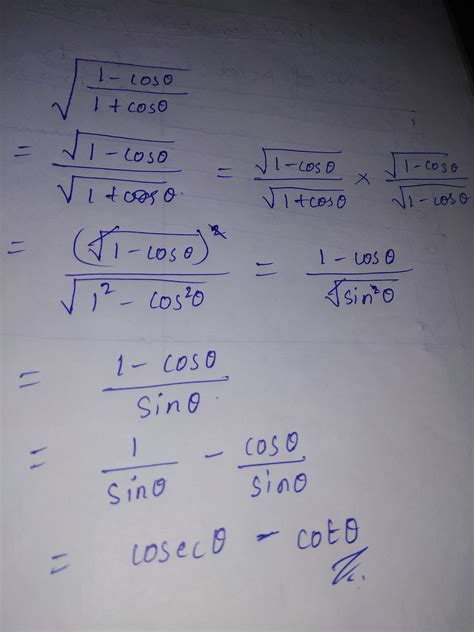 √((1-cosθ)/(1+cosθ))
= √(1-cosθ)/√(1+cosθ) = √(1-cosθ)/√(1+cosθ) × √(1-cosθ)/√(1-cosθ)
= (√(1-cosθ))²/√(1²-cos²θ) = (1-cosθ)/√(sin²θ)
= (1-cosθ)/sinθ
= 1/sinθ - cosθ/sinθ
= cosecθ - cotθ